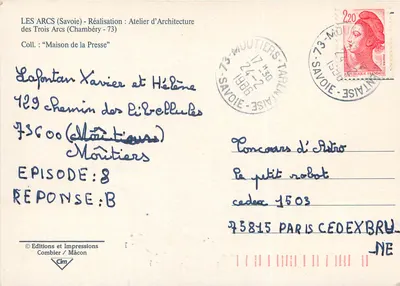 LES ARCS (Savoie) - Réalisation : Atelier d'Architecture
des Trois Arcs (Chambéry - 73)
Coll. : "Maison de la Presse"
73-MOUTIERS-TARENTAISE
17 H 30
24-2
1986
SAVOIE
2,20
73-MOUTIERS-TARENTAISE
SAVOIE
Lafontan Xavier et Hélène
129 chemin des libellules
73600 (Moûtiers)
Moûtiers
EPISODE: 8
RÉPONSE: B
Concours d'Astro
le petit robot
cedex 1503
75815 PARIS CEDEX BRU-
NE
© Editions et Impressions
Combier / Mâcon
Cim